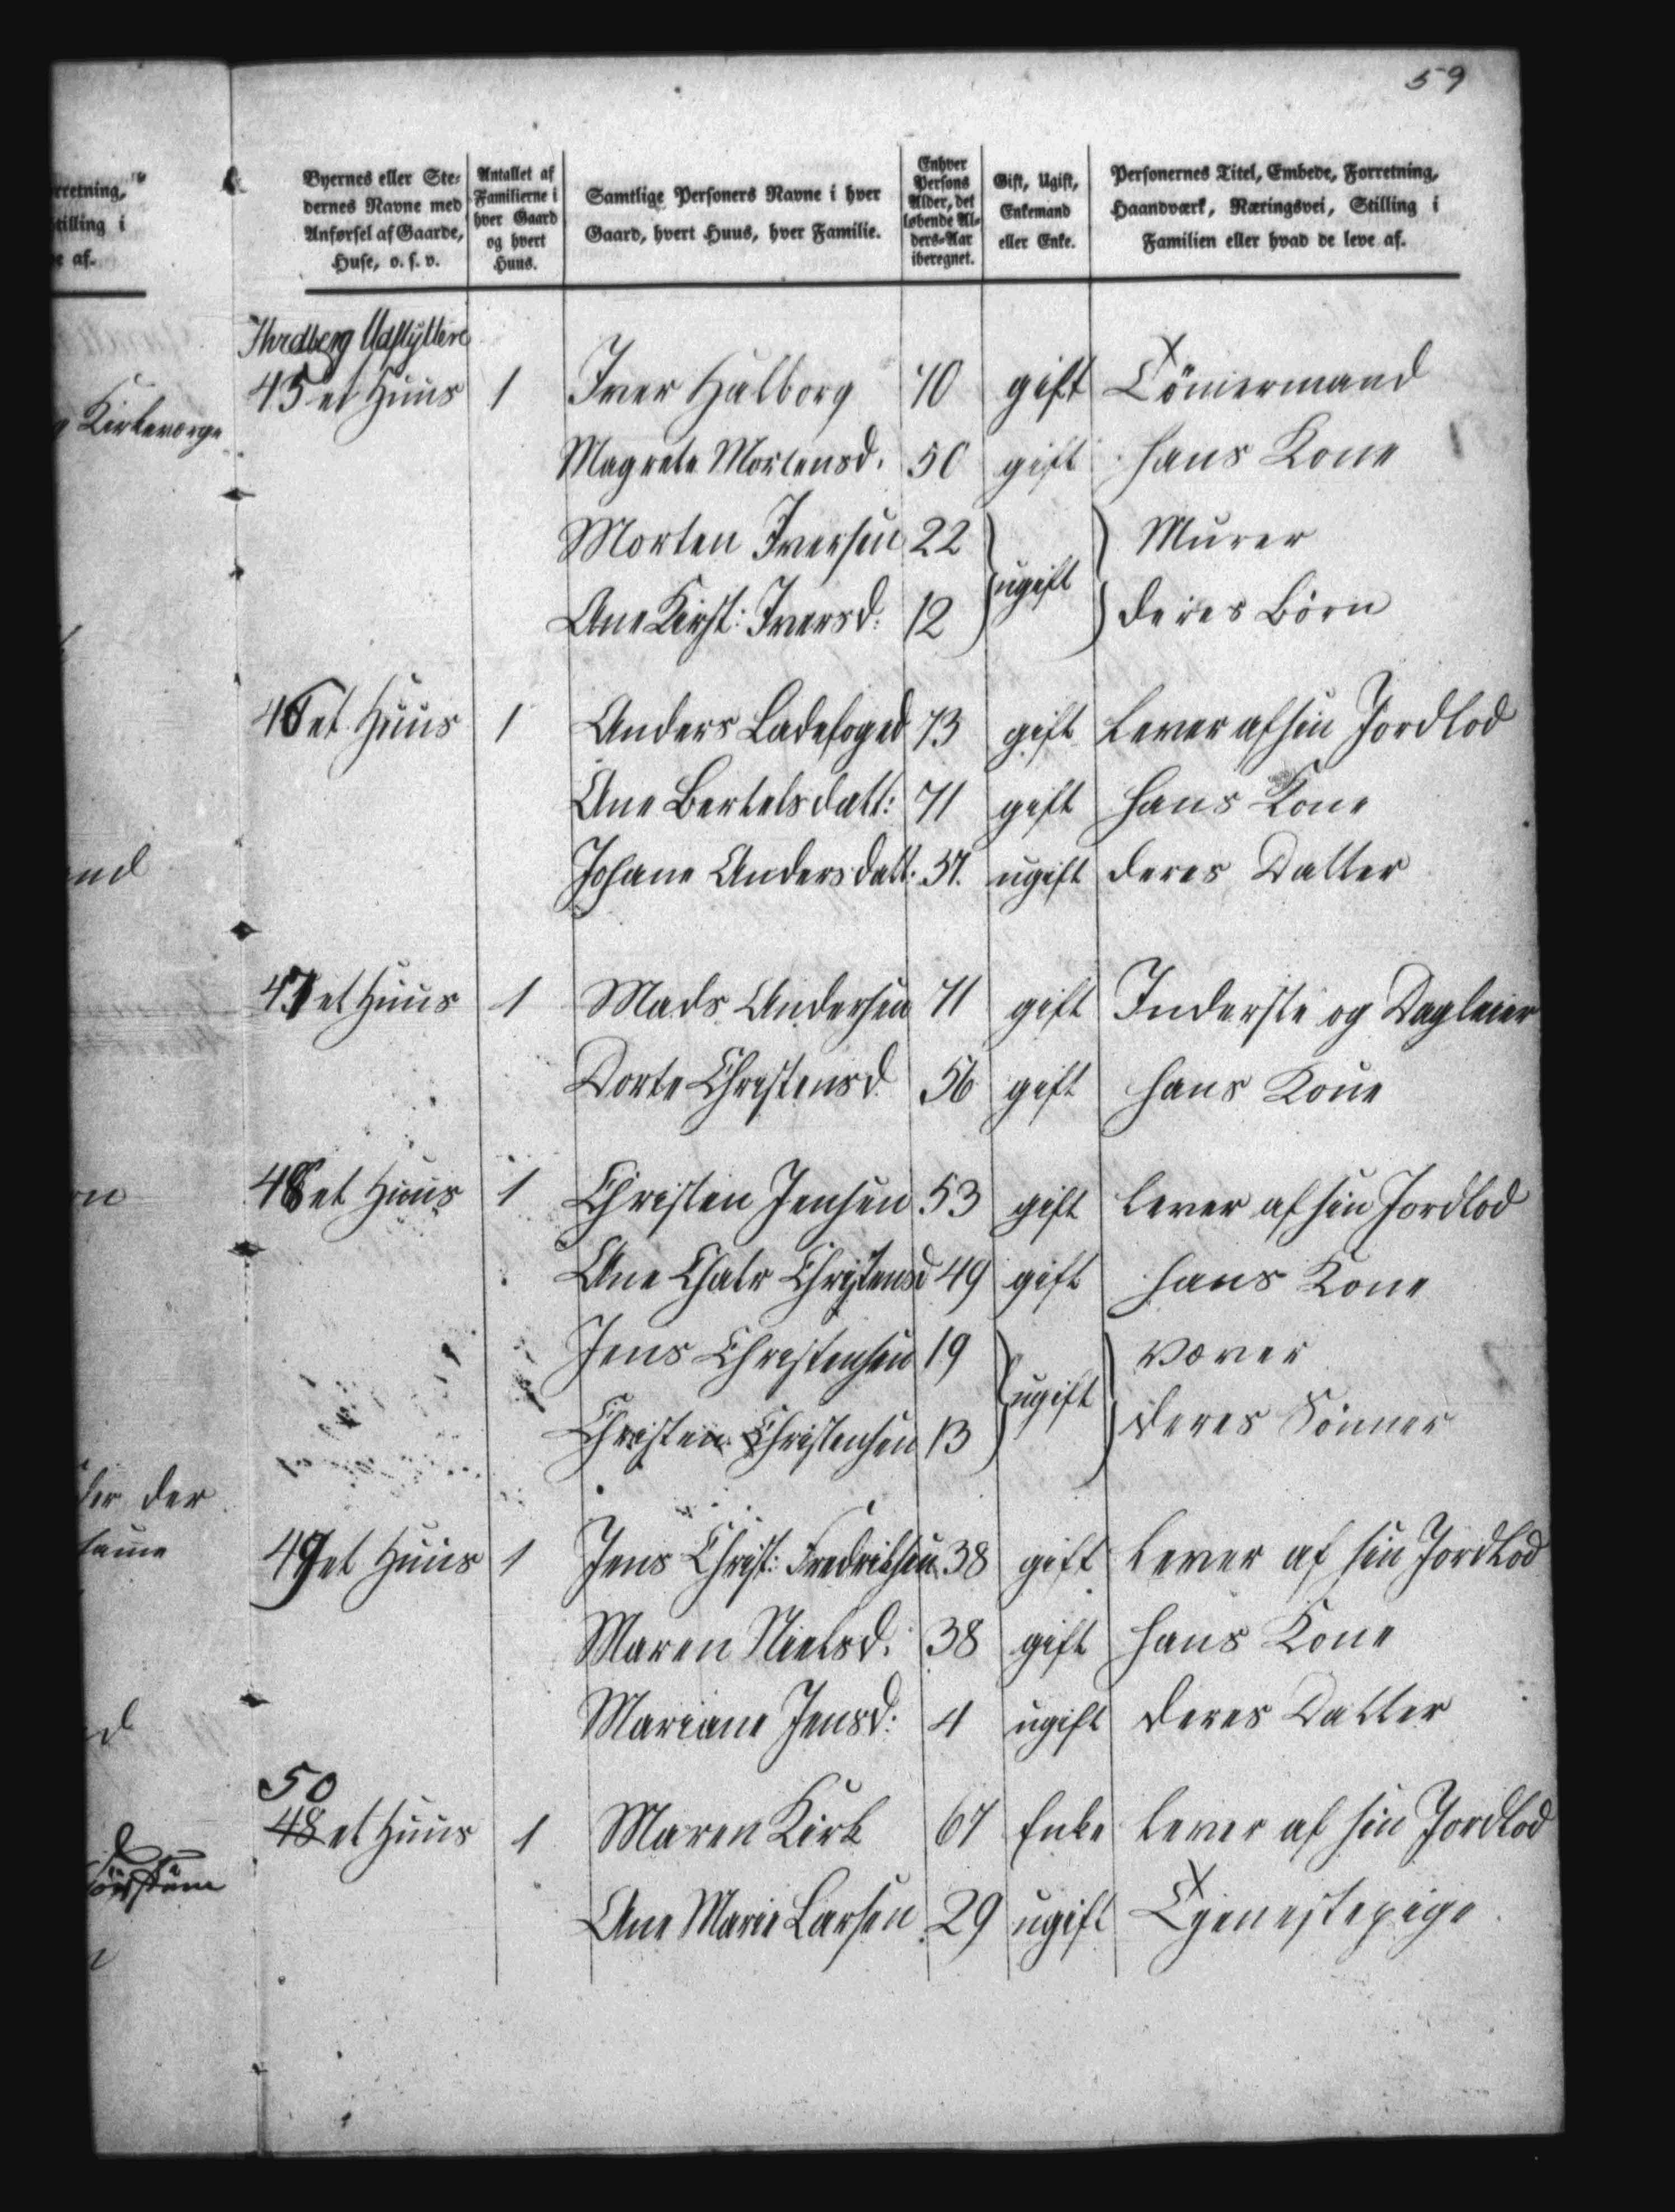 59
Byernes eller Ste-
dernes Navne med
Anførsel af Gaarde,
Huse, o. s. v.
Antallet af
Familierne i
hver Gaard
og hvert
Huus.
Samtlige Personers Navne i hver
Gaard, hvert Huus, hver Familie.
Enhver
Persons
Alder, det
løbende Al-
ders-Aar
iberegnet.
Gift, Ugift,
Enkemand
eller Enke.
Personernes Titel, Embede, Forretning,
Haandværk, Næringsvei, Stilling i
Familien eller hvad de leve af.
Udflyttere
45 et Huus 1 Iver Halborg 70 gift Tömermand
Magrete Mortensd. 50 gift hans Kone
Morten Iversen 22 ugift Murer
Ane Kirst: Iversd: 12 deres Börn
46 et Huus 1 Anders Ladefoged 73 gift Lever af sin Jordlod
Ane Bertelsdatt: 71 gift hans Kone
Johane Andersdatt. 37. ugift deres Datter
47 et Huus 1 Mads Andersen 71 gift Inderste og Dagleier
Dorte Christensd. 56 gift hans Kone
48 et Huus 1 Christen Jensen 53 gift lever af sin Jordlod
Ane Chatr Christensd 49 gift hans Kone
Jens Christensen 19 ugift Væver
Christen Christensen 13 deres Sönner
49 et Huus 1 Jens Christ: Fredriksen 38 gift lever af sin Jordlod
Maren Nielsd. 38 gift hans Kone
Mariane Jensd: 4 ugift deres Datter
50
48 et Huus 1 Maren Kirk 67 Enke lever af sin Jordlod
Ane Marie Larsen 29 ugift Tjenestepige